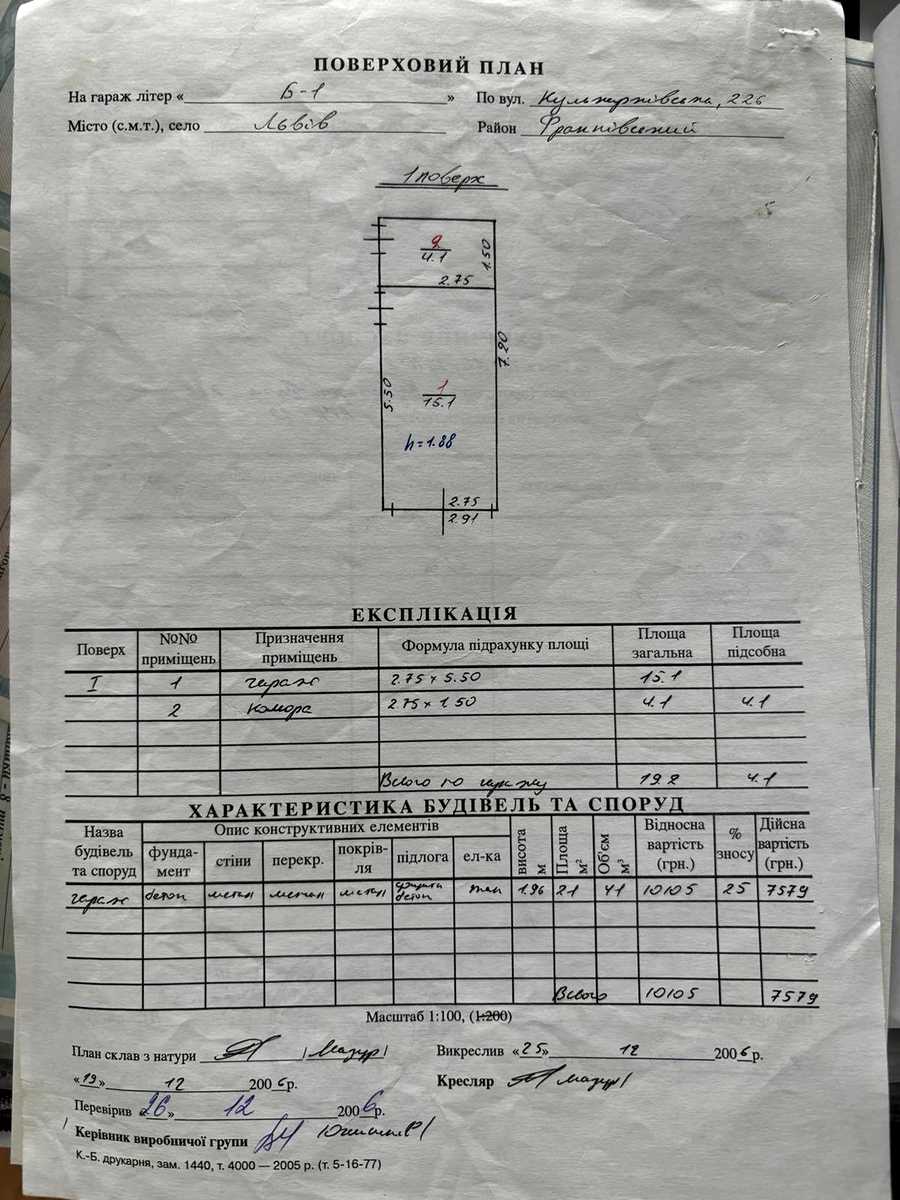 ПОВЕРХОВИЙ ПЛАН
На гараж літер « Б-1 » По вул. Кульпарківська, 226
Місто (с.м.т.), село Львів Район Франківський
1 поверх
2
4.1
1.50
2.75
7.20
5.50
1
15.1
h=1.88
2.75
2.91
ЕКСПЛІКАЦІЯ
Поверх №№ приміщень Призначення приміщень Формула підрахунку площі Площа загальна Площа підсобна
I 1 гараж 2.75 x 5.50 15.1
2 комора 2.75 x 1.50 4.1 4.1
Всього по гаражу 19.2 4.1
ХАРАКТЕРИСТИКА БУДІВЕЛЬ ТА СПОРУД
Назва будівель та споруд Опис конструктивних елементів висота м Площа м² Об'єм м³ Відносна вартість (грн.) % зносу Дійсна вартість (грн.)
фунда-мент стіни перекр. покрів-ля підлога ел-ка
гараж бетон метал метал метал бетон 1.96 21 41 10105 25 7579
Всього 10105 7579
Масштаб 1:100, (1:200)
План склав з натури /Мазур/ Викреслив «25» 12 2006 р.
«19» 12 2006 р. Кресляр Мазур/
Перевірив «26» 12 2006 р.
Керівник виробничої групи
К.-Б. друкарня, зам. 1440, т. 4000 — 2005 р. (т. 5-16-77)